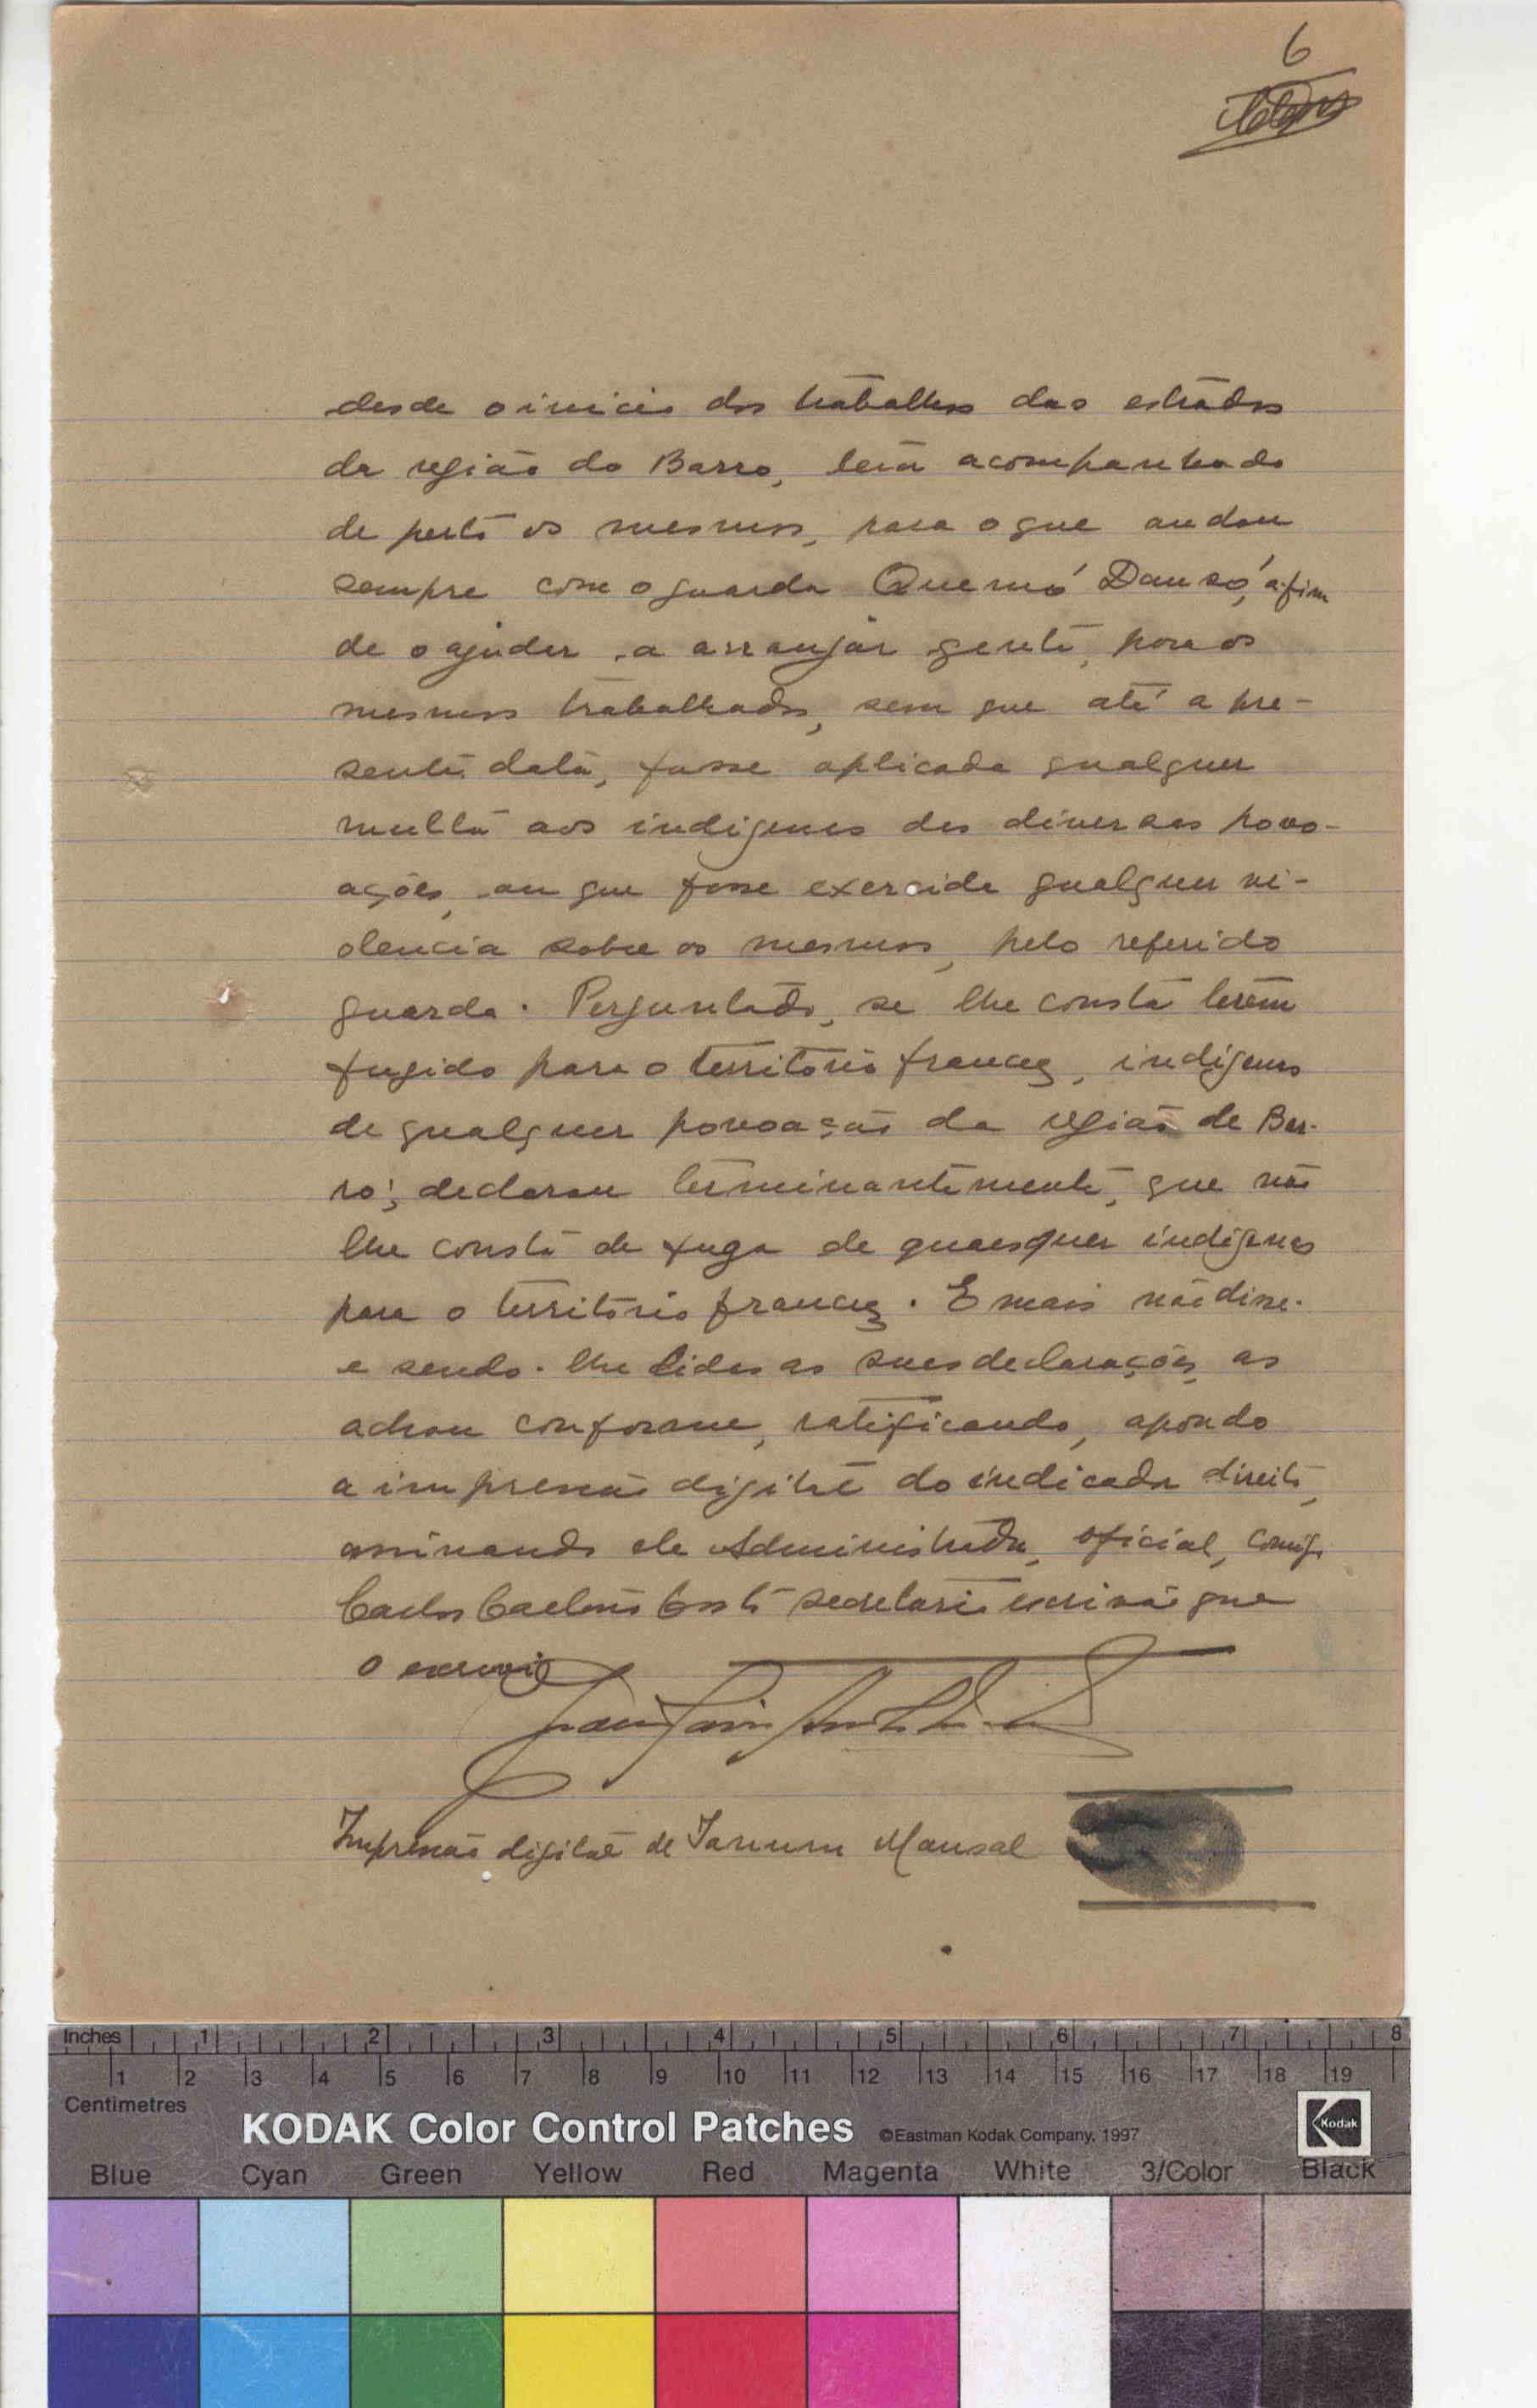 6
desde o inicio dos trabalhos das estradas
da região do Barro, tem acompanhado
de perto os mesmos, para o que andou
sempre com o guarda Quemó Dansó, afim
de o ajudar a arranjar gente, para os
mesmos trabalhados, sem que até a pre-
sente data, fosse aplicada qualquer
multa aos indigenas das diversas povo-
ações, ou que fosse exercida qualquer vi-
olencia sobre os mesmos, pelo referido
guarda. Perguntado, se lhe consta terem
fugido para o territorio francez, indigenas
de qualquer povoação da região de Bar-
ro; declarou terminantemente, que não
lhe consta de fuga de quaesquer indigenas
para o territorio francez. E mais não disse.
e sendo-lhe lidas as suas declarações, as
achou conforme, ratificando, apondo
a impressão digital do indicador direito,
assinando ele Administrador, oficial, comigo
Carlos Caetano Costa secretario escrivão que
o escrevi
Impressão digital de Mansal
Inches 1 2 3 4 5 6 7 8
1 2 3 4 5 6 7 8 9 10 11 12 13 14 15 16 17 18 19
Centimetres
KODAK Color Control Patches ©Eastman Kodak Company, 1997 Kodak
Blue Cyan Green Yellow Red Magenta White 3/Color Black